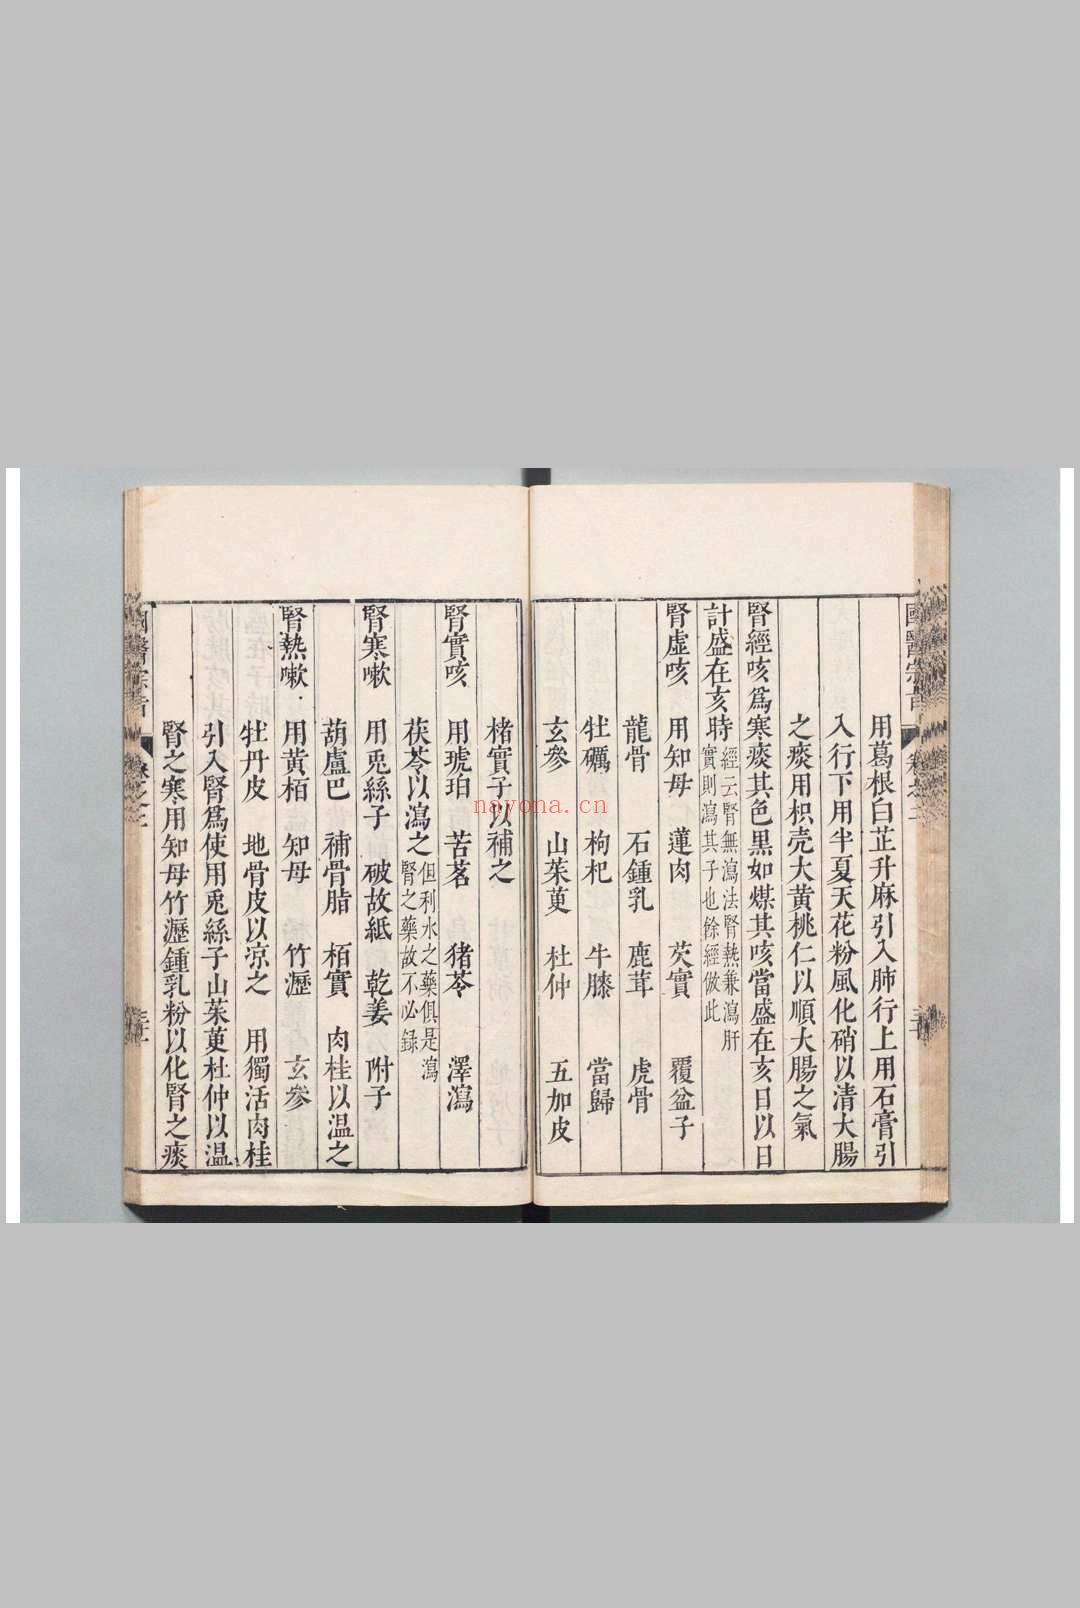 用葛根白芷升麻引入肺行上用石膏引
入行下用半夏天花粉風化硝以清大腸
之痰用枳壳大黄桃仁以順大腸之氣
腎經咳爲寒痰其色黒如煤其咳當盛在亥日以日
計盛在亥時經云腎無瀉法腎熱兼瀉肝
實則瀉其子也餘經倣此
腎虚咳 用知母 蓮肉 芡實 覆盆子
龍骨 石鍾乳 鹿茸 虎骨
牡礪 枸杞 牛膝 當歸
玄參 山茱萸 杜仲 五加皮
楮實子以補之
腎實咳 用琥珀 苦茗 猪苓 澤瀉
茯苓以瀉之但利水之藥俱是瀉
腎之藥故不必録
腎寒嗽 用兎絲子 破故紙 乾姜 附子
葫盧巴 補骨脂 栢實 肉桂以温之
腎熱嗽 用黄栢 知母 竹瀝 玄參
牡丹皮 地骨皮以凉之 用獨活肉桂
引入腎爲使用兎絲子山茱萸杜仲以温
腎之寒用知母竹瀝鍾乳粉以化腎之痰
國醫宗旨 卷之三
nayona.cn